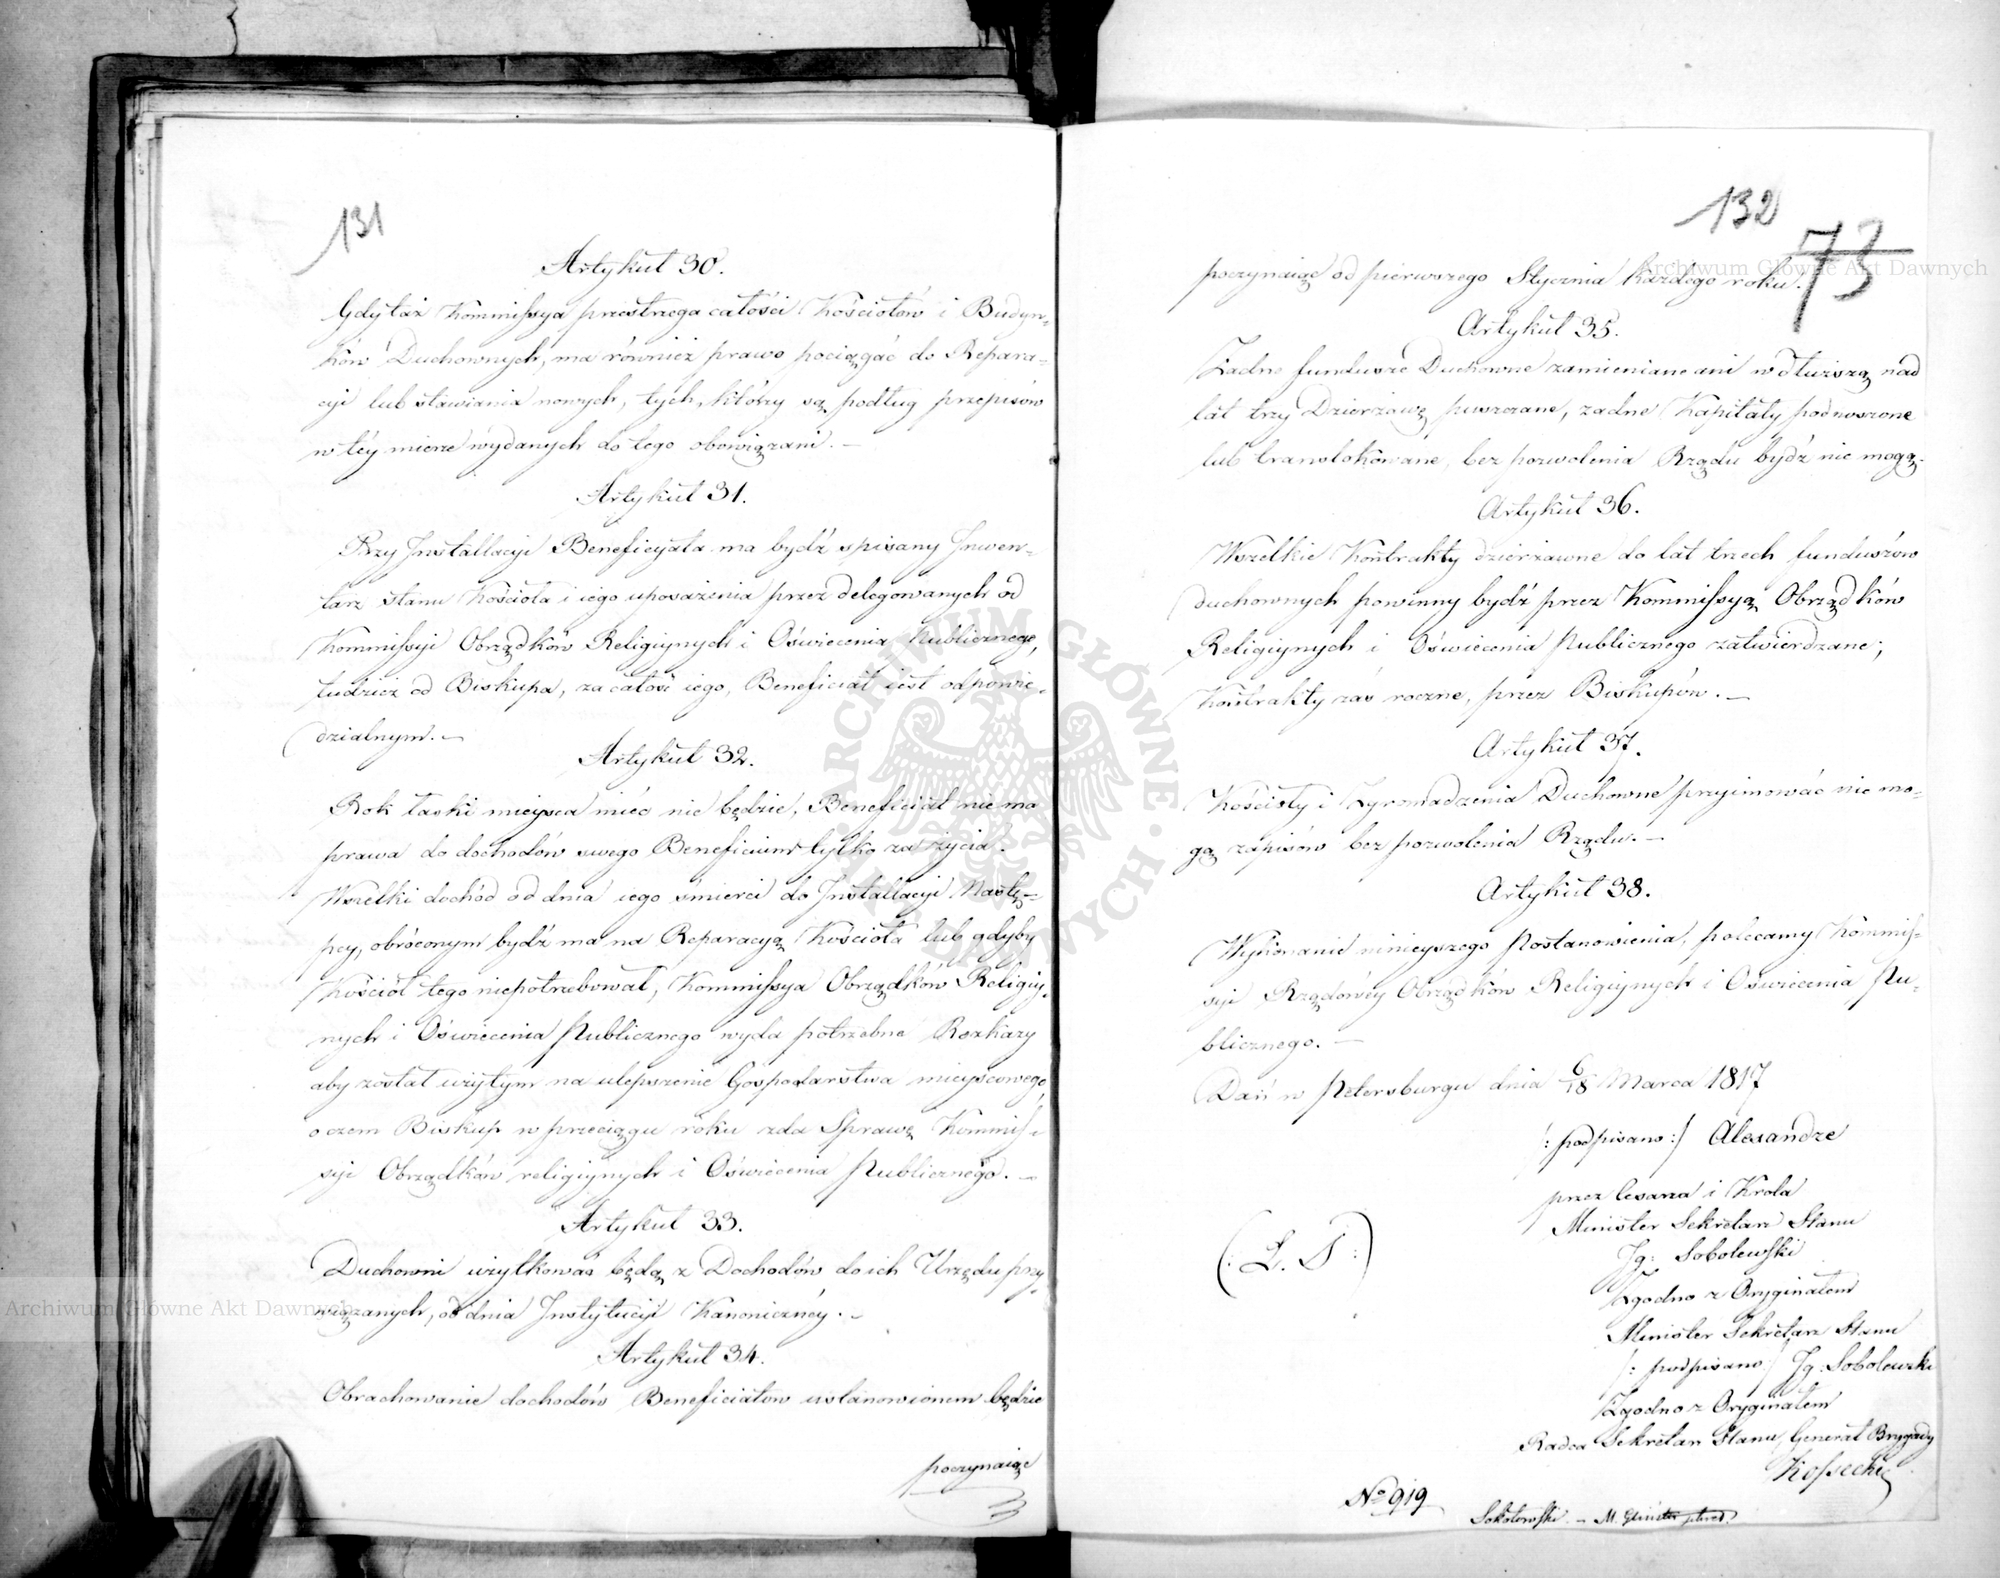 131
Artykuł 30.
Gdy taż Kommissya przestrzega całości Kościołów i Budyn-
ków Duchownych, ma również prawo pociągać do Repara-
cyi lub stawiania nowych, tych, którzy są podług przepisów
w téy mierze wydanych do tego obowiązani. —
Artykuł 31.
Przy Installacyi Beneficyata ma bydź spisany Inwen-
tarz stanu Kościoła i iego uposażenia przez delegowanych od
Kommissyi Obrządków Religiynych i Oświecenia Publicznego,
tudzież od Biskupa, za całość iego, Beneficiat iest odpowie-
dzialnym. —
Artykuł 32.
Rok łaski mieysca mieć nie będzie, Beneficiat nie ma
prawa do dochodów swego Beneficium tylko za życia.
Wszelki dochód od dnia iego śmierci do Installacyi Nastę-
pcy, obróconym bydź ma na Reparacyą Kościoła lub gdyby
Kościół tego niepotrzebował, Kommissya Obrządków Religiy-
nych i Oświecenia Publicznego wyda potrzebne Rozkazy
aby został użytym na ulepszenie Gospodarstwa mieyscowego,
o czem Biskup w przeciągu roku zda Sprawę Kommis-
syi Obrządków religiynych i Oświecenia Publicznego. —
Artykuł 33.
Duchowni użytkować będą z Dochodów do ich Urzędu przy-
wiązanych, od dnia Instytucyi Kanoniczney. —
Artykuł 34.
Obrachowanie dochodów Beneficiatow ustanowionem będzie
poczynaiąc
132
73
poczynaiąc od pierwszego Stycznia każdego roku.
Artykuł 35.
Żadne fundusze Duchowne zamieniane ani w dłuższą nad
lat trzy Dzierżawę puszczane, żadne Kapitały podnoszone
lub translokowane, bez pozwolenia Rządu bydź nie mogą.
Artykuł 36.
Wszelkie Kontrakty dzierżawne do lat trzech funduszow
duchownych powinny bydź przez Kommissyą Obrządków
Religiynych i Oświecenia Publicznego zatwierdzane;
Kontrakty zaś roczne, przez Biskupów. —
Artykuł 37.
Kościoły i Zgromadzenia Duchowne przyimować nie mo-
gą zapisów bez pozwolenia Rządu. —
Artykuł 38.
Wykonanie ninieyszego Postanowienia, polecamy Kommis-
syi Rządowéy Obrządków Religiynych i Oświecenia Pu-
blicznego. —
Dań w Petersburgu dnia 6/18 Marca 1817
/: podpisano :/ Alexandre
przez Cesarza i Krola
Minister Sekretarz Stanu
Ig: Sobolewski
(: L. S :)
Zgodno z Oryginałem
Minister Sekretarz Stanu
/: podpisano / Ig: Sobolewski
Zgodno z Oryginałem
Radca Sekretarz Stanu, Generał Brygady
Kossecki
No 919
Sokołowski. — M.
Archiwum Główne Akt Dawnych
Archiwum Główne Akt Dawnych
ARCHIWUM GŁÓWNE AKT DAWNYCH